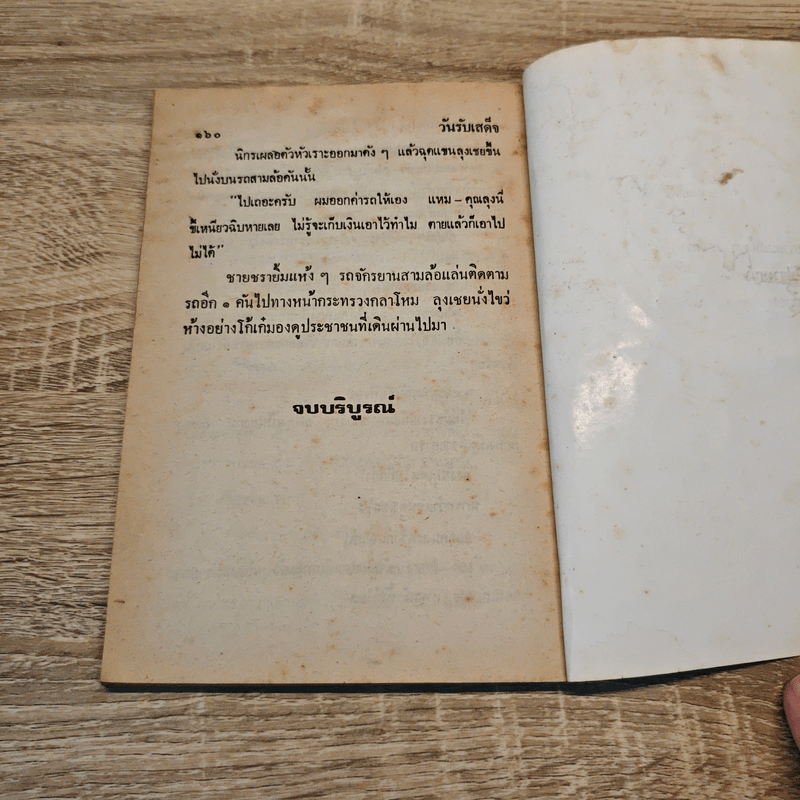 ๑๖๐ วันรับเสด็จ
นิกรเผลอตัวหัวเราะออกมาดัง ๆ แล้วฉุดแขนลุงเชยขึ้น
ไปนั่งบนรถสามล้อคันนั้น
“ไปเถอะครับ ผมออกค่ารถให้เอง แหม – คุณลุงนี่
ขี้เหนียวฉิบหายเลย ไม่รู้จะเก็บเงินเอาไว้ทำไม ตายแล้วก็เอาไป
ไม่ได้”
ชายชรายิ้มแห้ง ๆ รถจักรยานสามล้อแล่นติดตาม
รถอีก ๑ คันไปทางหน้ากระทรวงกลาโหม ลุงเชยนั่งไขว่
ห้างอย่างโก้เก๋มองดูประชาชนที่เดินผ่านไปมา
จบบริบูรณ์